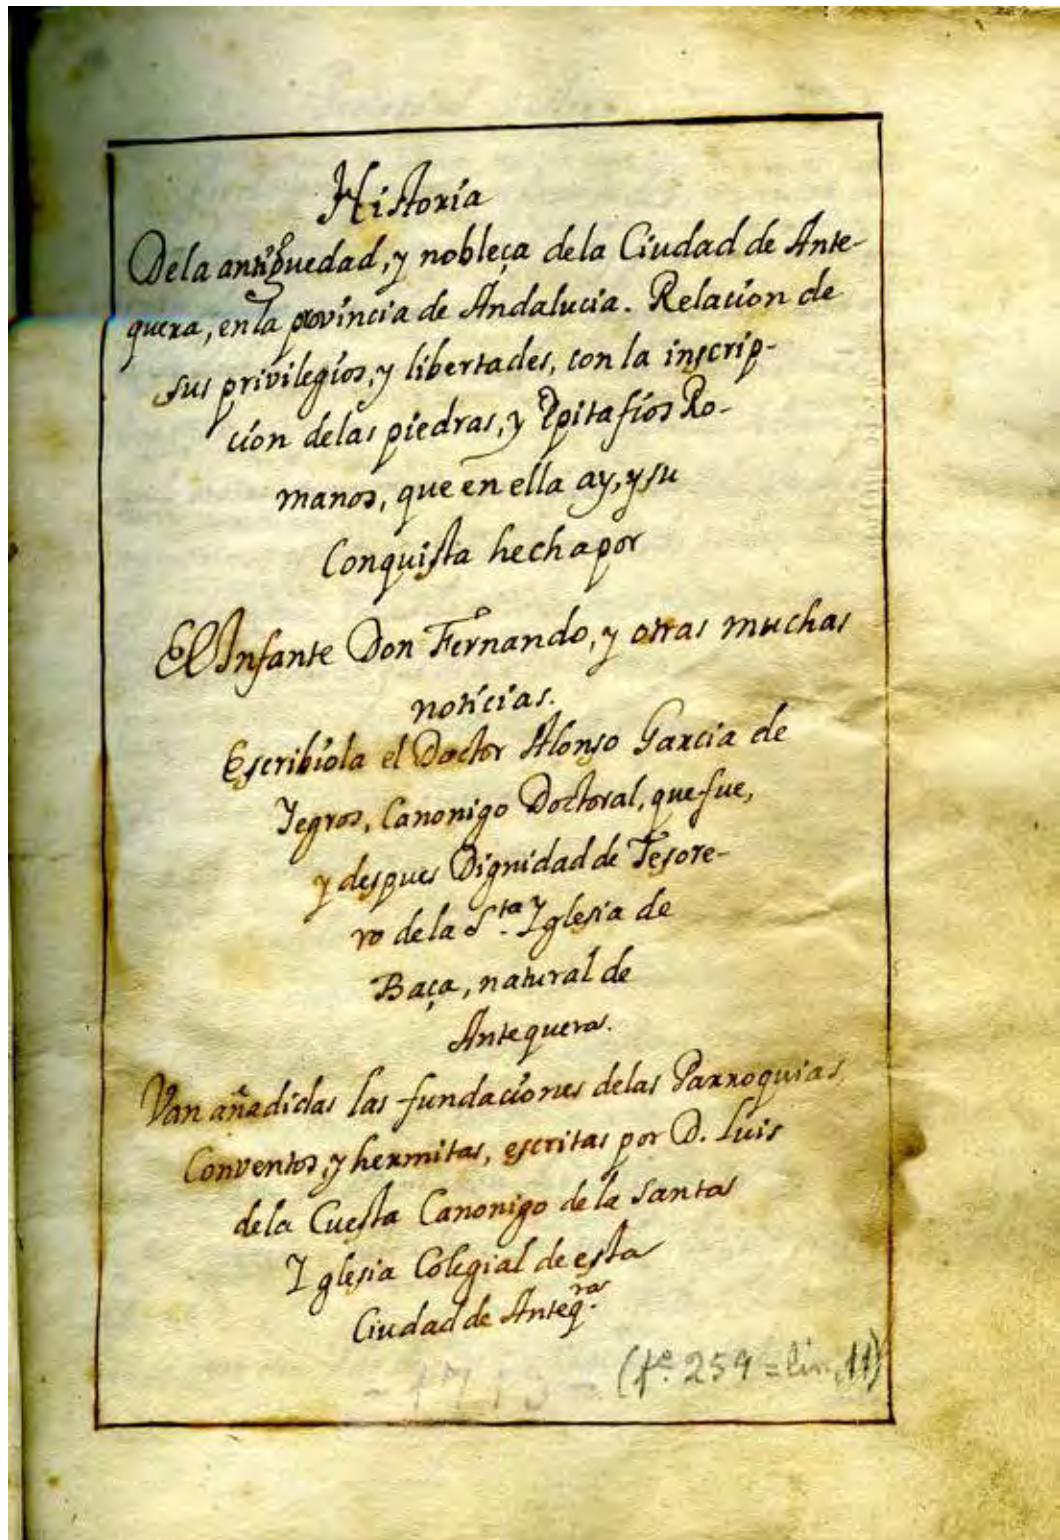 Historia
Dela antiguedad, y nobleça dela Ciudad de Ante-
quera, en la provincia de Andalucia. Relacion de
sus privilegios, y libertades, con la inscrip-
cion delas piedras, y Epitafios Ro-
manos, que en ella ay, y su
Conquista hecha por
El Infante Don Fernando, y otras muchas
noticias.
Escribiola el Doctor Alonso Garcia de
Yegros, Canonigo Doctoral, que fue,
y despues Dignidad de Tesore-
ro de la S.ta Yglesia de
Baça, natural de
Antequera.
Van añadidas las fundaciones delas Parroquias,
Conventos, y hermitas, escritas por D. Luis
dela Cuesta Canonigo de la Santa
Yglesia Colegial de esta
Ciudad de Anteq.ra
(fº. 259 = lin, 11)
- 1713 -